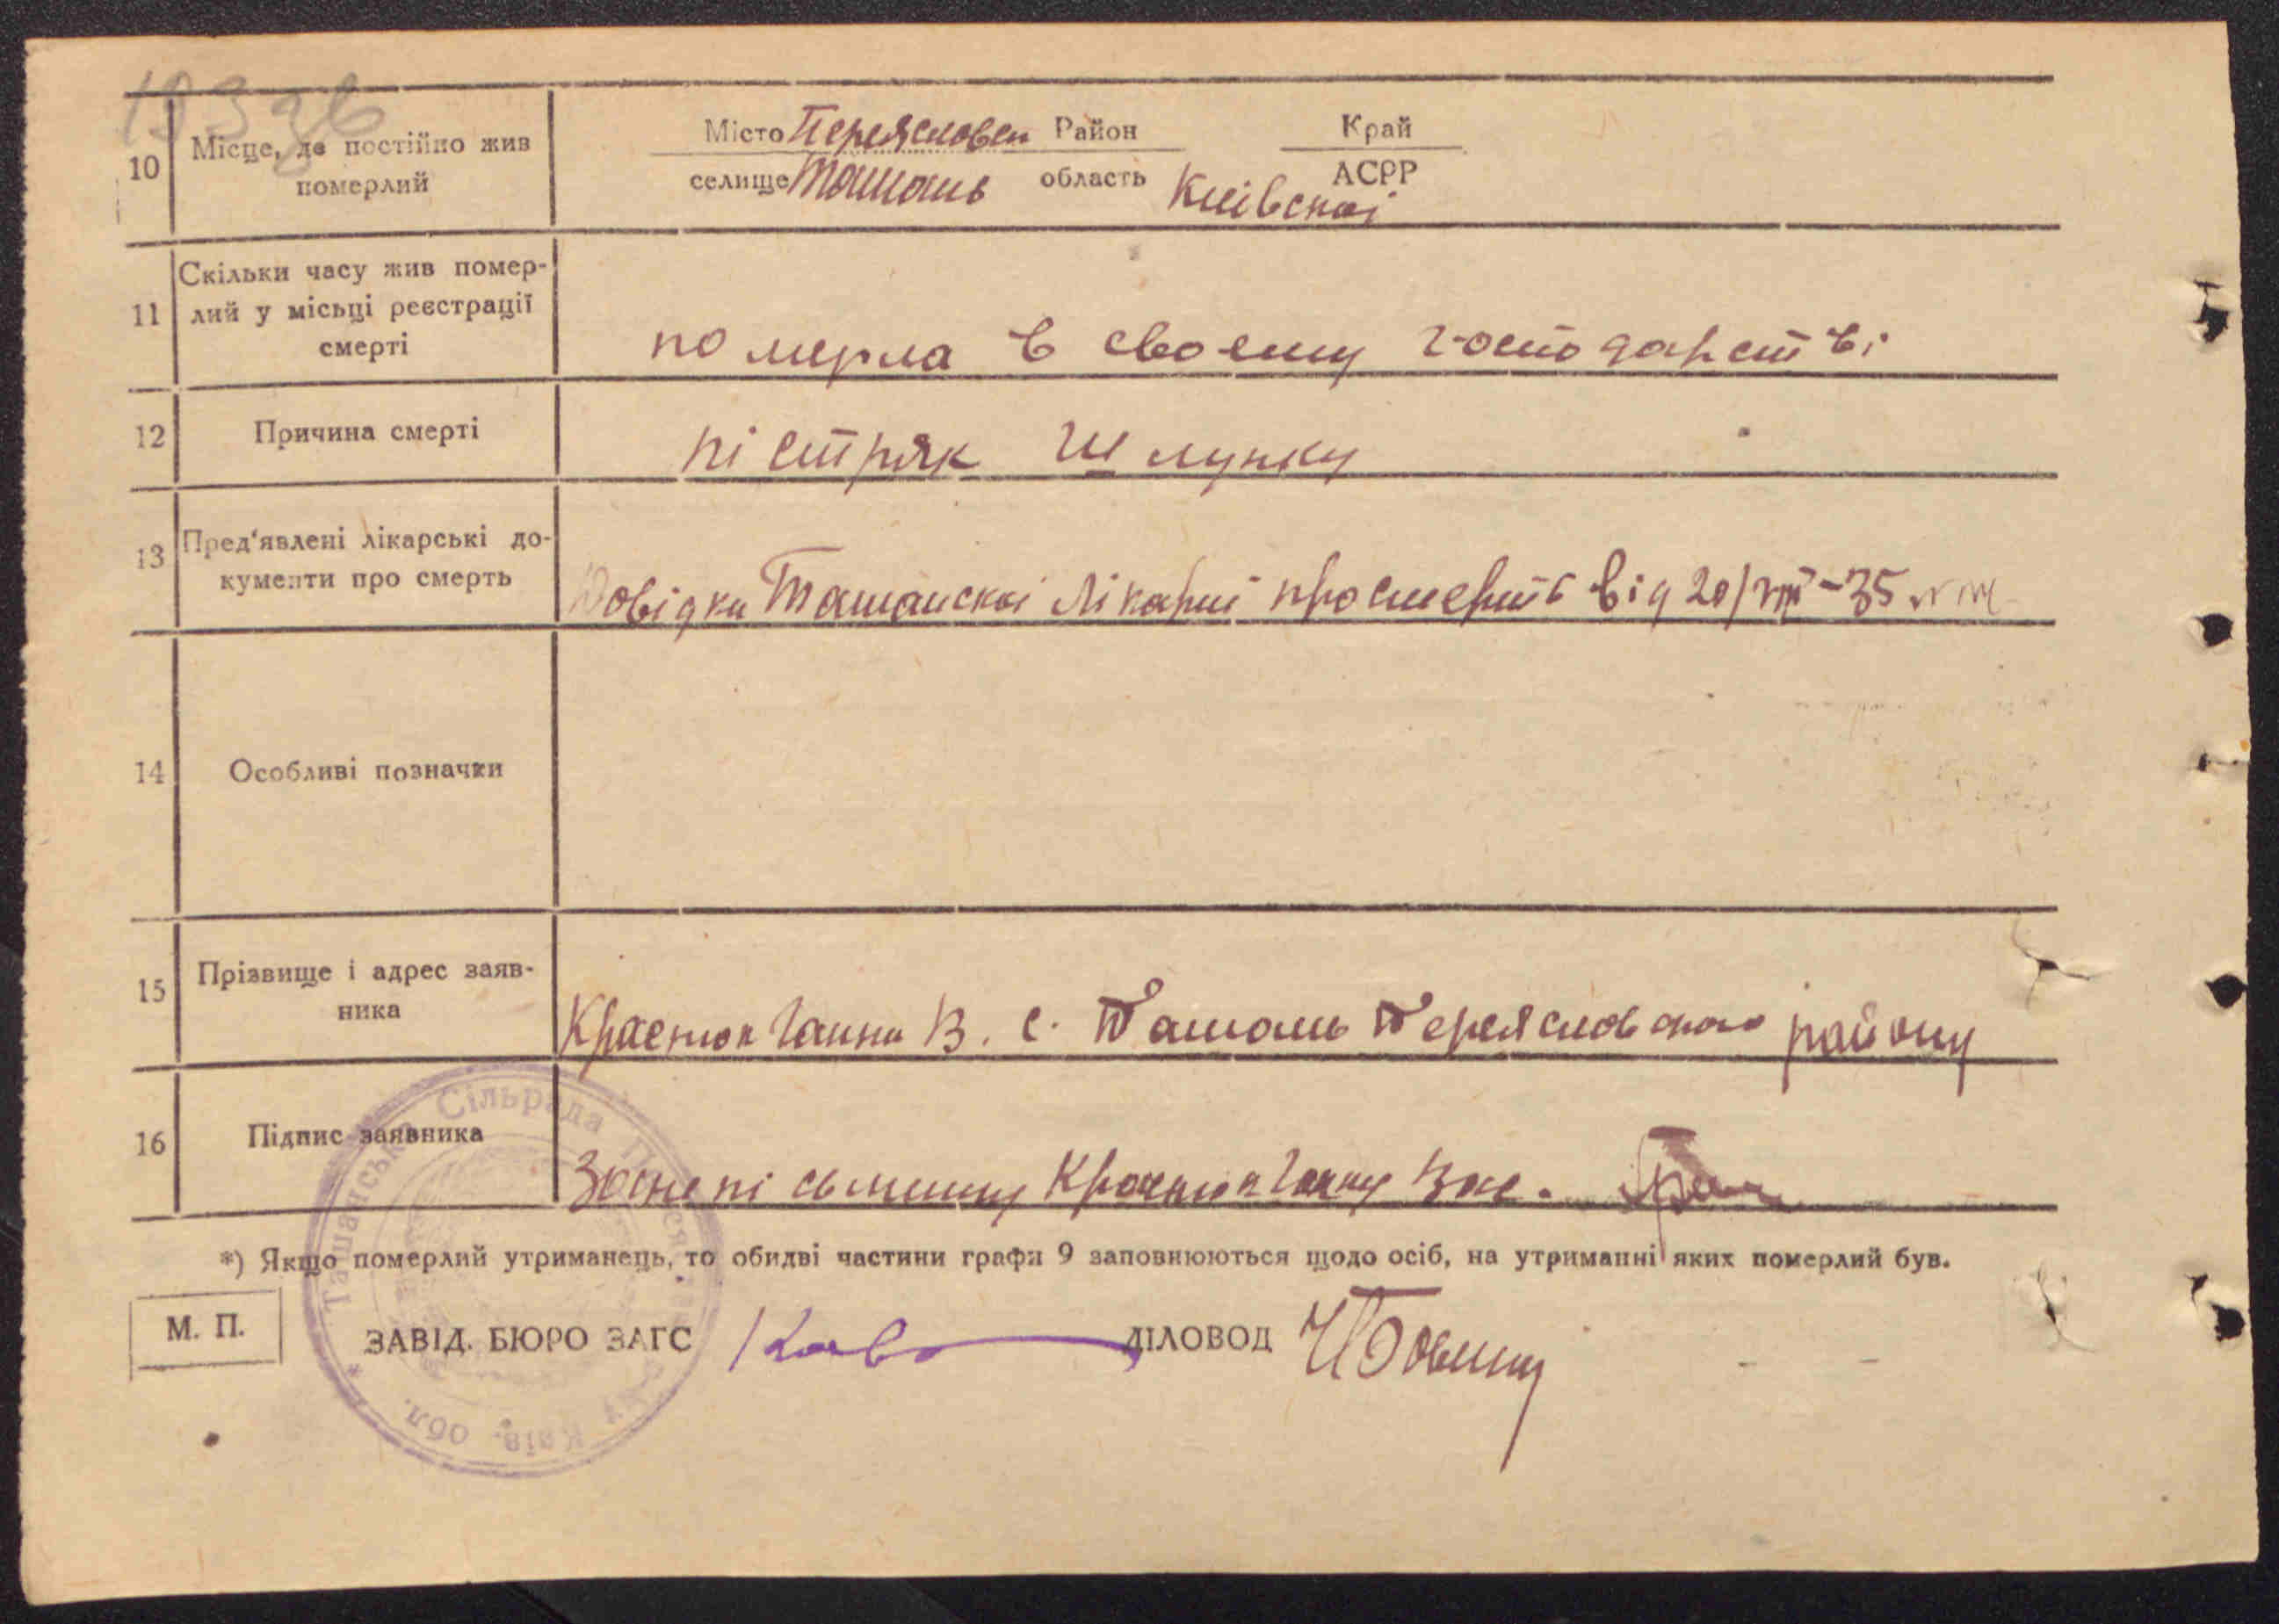 10 Місце, де постійно жив
померлий
Місто Переяслов Район Край
селище Ташань область Київскої АСРР
11 Скільки часу жив помер-
лий у місьці реєстрації
смерті
померла в своему господарстві
12 Причина смерті
пістряк шлунку
13 Пред'явлені лікарські до-
кументи про смерть
Довідка Ташанскої Лікарні про смерть від 20/VIII-35
14 Особливі позначки
15 Прізвище і адрес заяв-
ника
Краснюк Ганна В. с. Ташань Переясловского району
16 Підпис заявника
Краснюк Ганну Вас.
*) Якщо померлий утриманець, то обидві частини графи 9 заповнюються щодо осіб, на утриманні яких померлий був.
М. П. ЗАВІД. БЮРО ЗАГС ДІЛОВОД
Ташанська Сільрада
Київ. обл.